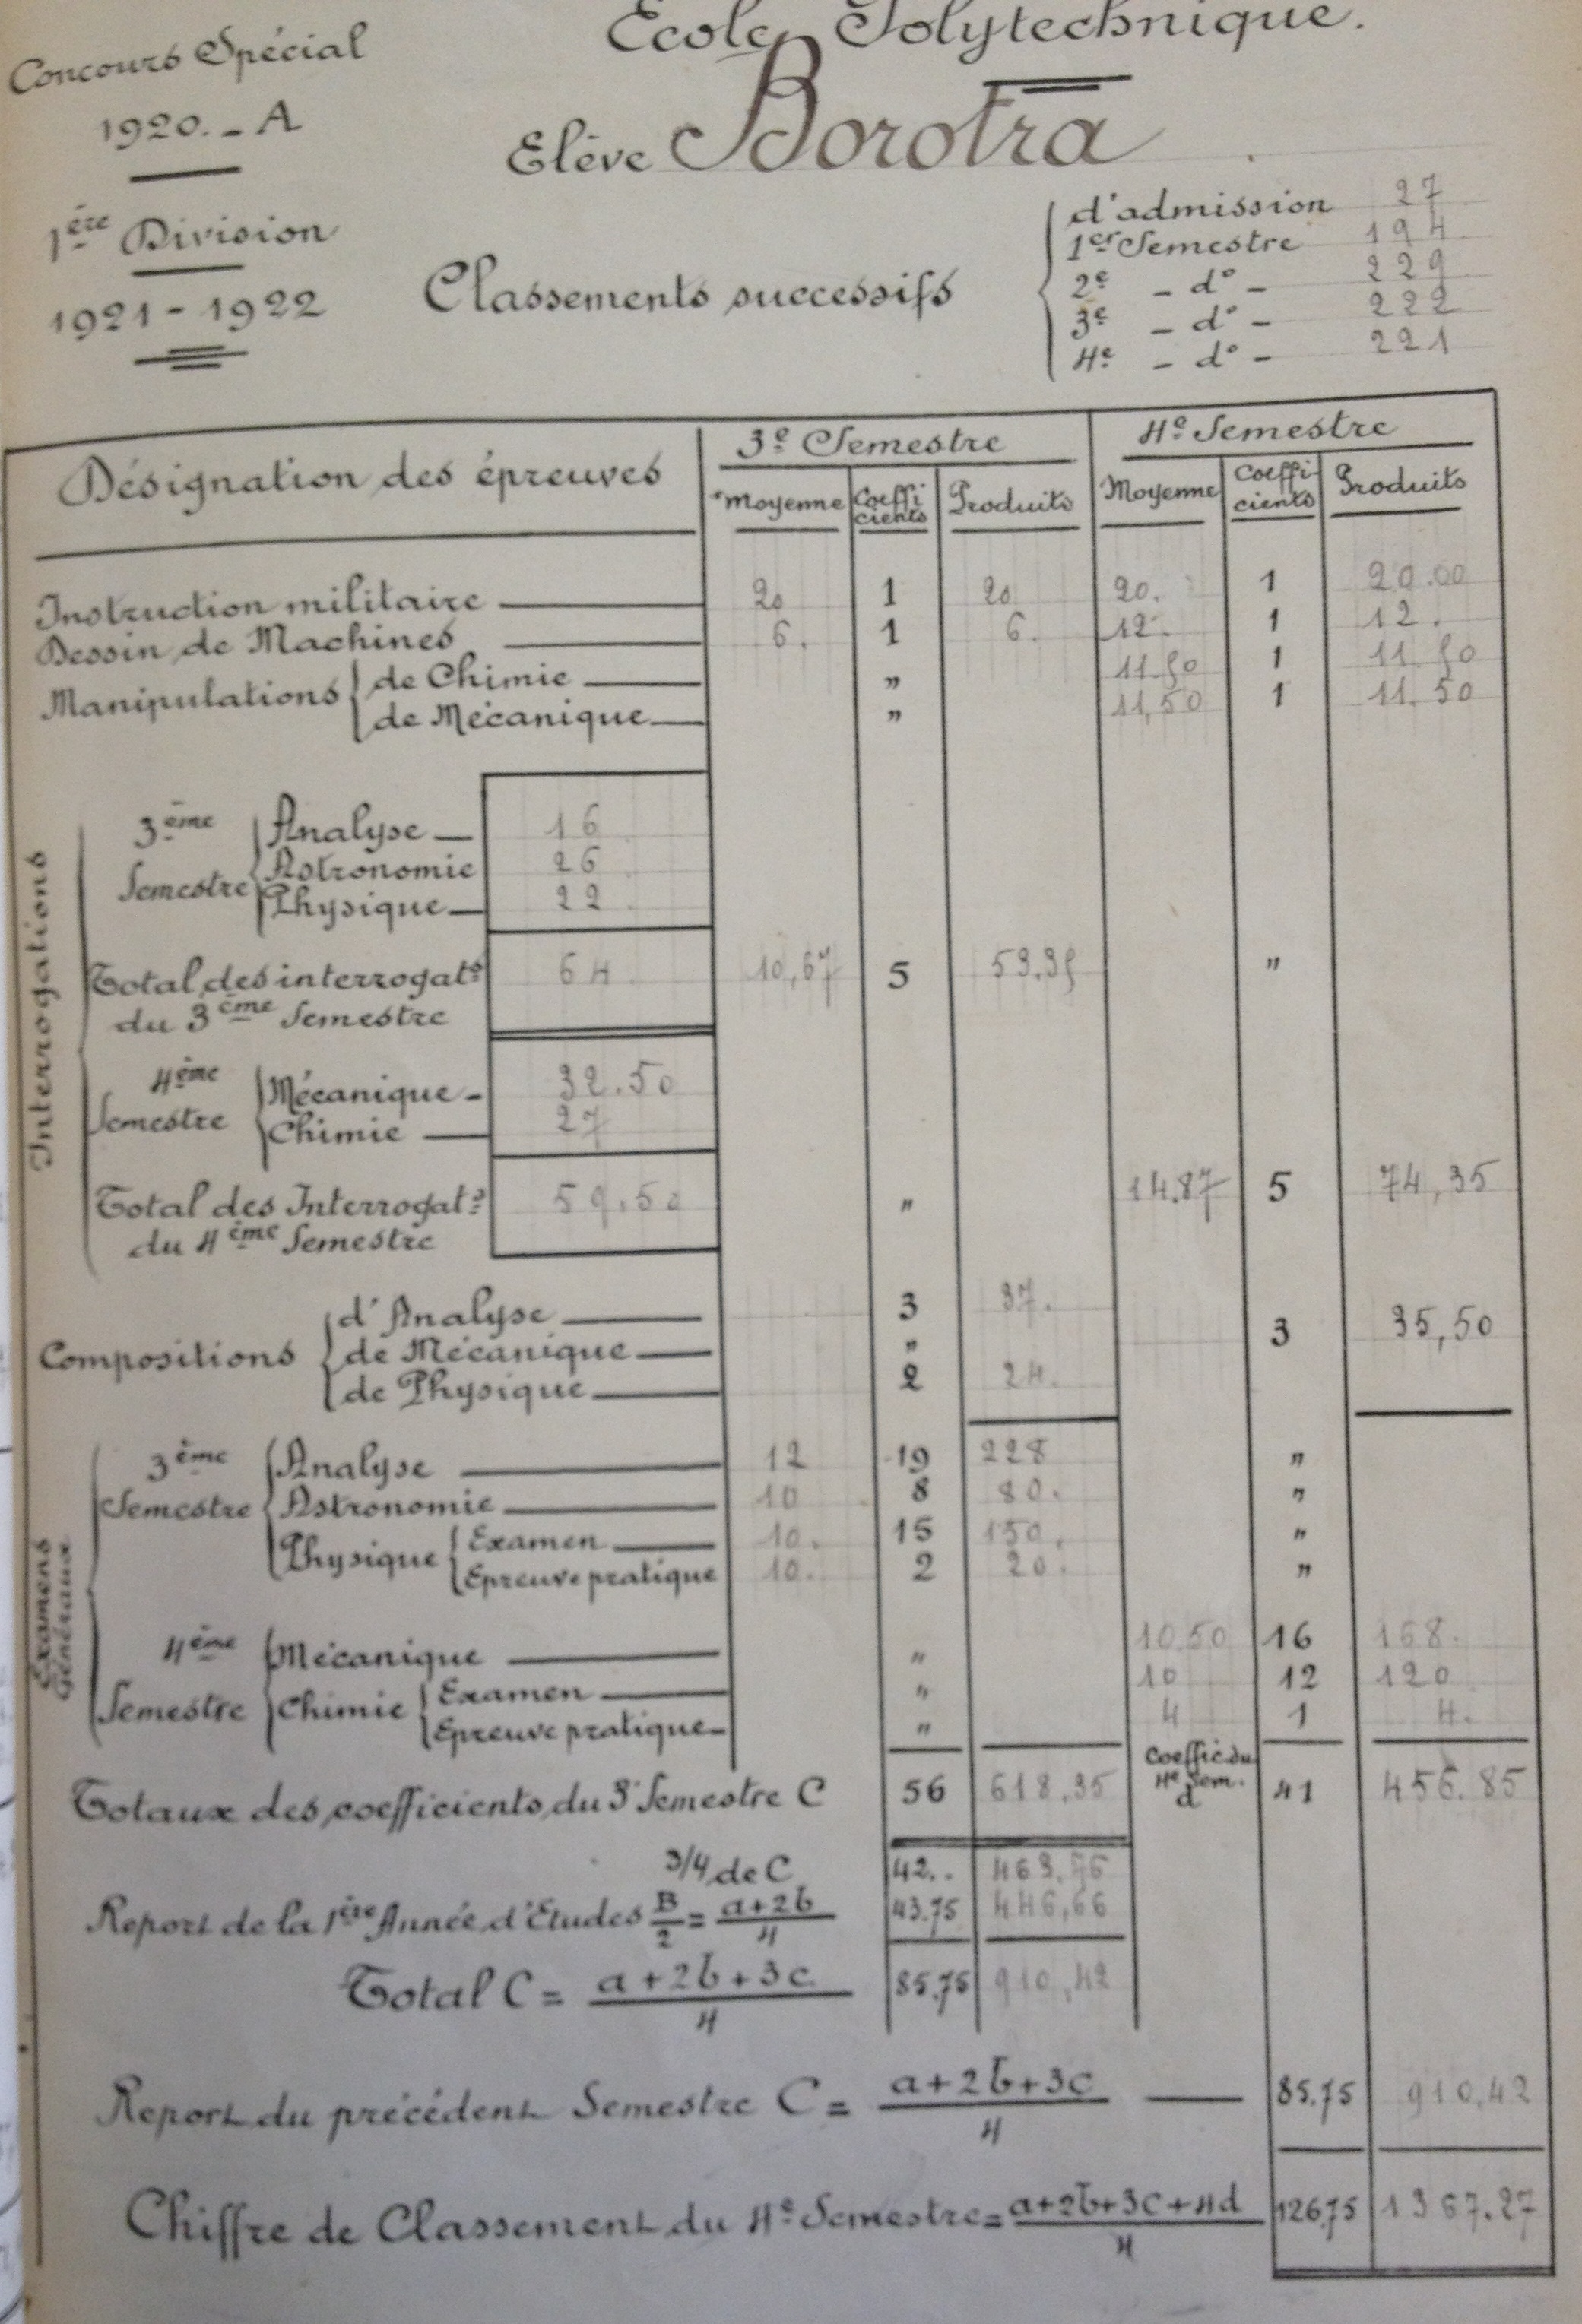 Ecole Polytechnique.
Concours Spécial
1920. - A
Elève Borotra
1ère Division
1921 - 1922
Classements successifs
d'admission 27
1er Semestre 194
2e - do - 229
3e - do - 222
4e - do - 221
Désignation des épreuves 3e Semestre 4e Semestre
Moyenne Coefficients Produits Moyenne Coefficients Produits
Instruction militaire 20 1 20 20. 1 20.00
Dessin de Machines 6. 1 6. 12. 1 12.
Manipulations de Chimie " 11.50 1 11.50
de Mécanique " 11,50 1 11.50
Interrogations
3ème Semestre Analyse 16
Astronomie 26
Physique 22
Total des interrogats du 3ème Semestre 64 10,67 5 53,35 "
4ème Semestre Mécanique 32.50
Chimie 27
Total des Interrogats du 4ème Semestre 59.50 " 14.87 5 74,35
Compositions d'Analyse 3 37.
de Mécanique " 3 35,50
de Physique 2 24.
Examens Généraux
3ème Semestre Analyse 12 19 228 "
Astronomie 10 8 80. "
Physique Examen 10. 15 150. "
Epreuve pratique 10. 2 20. "
4ème Semestre Mécanique " 10.50 16 168.
Chimie Examen " 10 12 120
Epreuve pratique " 4 1 4.
Totaux des coefficients du 3e Semestre C 56 618,35 Coeffic du 4e Sem. d 41 456.85
3/4 de C 42.. 463.76
Report de la 1ère Année d'Etudes B/2 = a+2b/4 43.75 446,66
Total C = a+2b+3c/4 85.75 910,42
Report du précédent Semestre C = a+2b+3c/4 85.75 910,42
Chiffre de Classement du 4e Semestre = a+2b+3c+4d/4 126.75 1367.27